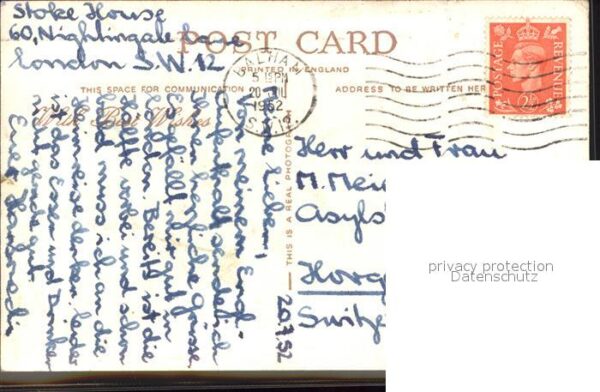 Stoke House
60, Nightingale Lane
London S.W. 12
POST CARD
PRINTED IN ENGLAND
THIS SPACE FOR COMMUNICATION
ADDRESS TO BE WRITTEN HERE
With Best Wishes
BALHAM
5 15 PM
20 JUL
1952
S.W.12
POSTAGE
REVENUE
THIS IS A REAL PHOTOGRAPH
20.7.52
Lieben,
Von meinem Eng-
landaufenthalt sende ich
herzliche Grüsse.
gefällt mir gut in
London. Bereits ist die
Hälfte vorbei und schon
muss ich an die
Heimreise denken, leider
Essen und Trinken
gut.
Herr und Frau
M. Mei
Asyls
Horg
Switze
privacy protection
Datenschutz